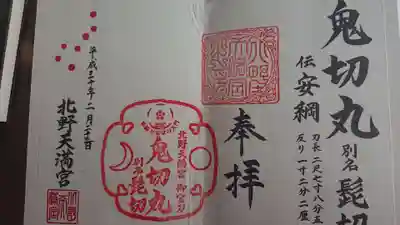 鬼切丸 別名 髭切
伝安綱
刃長 二尺七寸八分五
反り 一寸二分二厘
奉拝
北野天満宮 御宝刀
鬼切丸
別名 髭切
平成三十年二月二十三日
北野天満宮